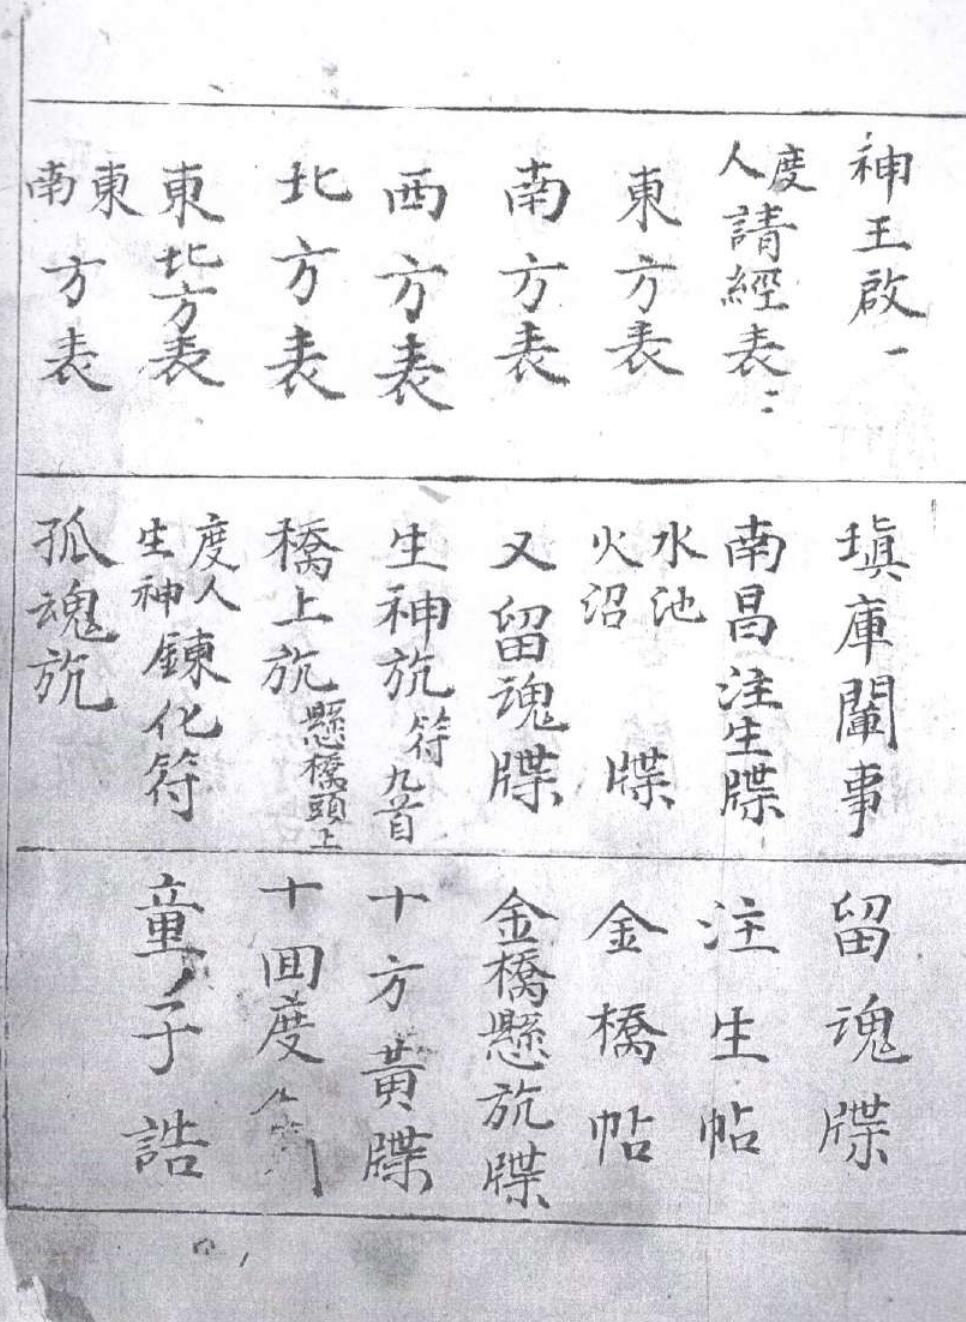 神王啟一
度人請經表二
東方表
南方表
西方表
北方表
東北方表
東南方表
塡庫闈事
南昌注生牒
水池火沼牒
又留魂牒
生神旂符九首
橋上旂懸橋頭上
度人生神鍊化符
孤魂旂
留魂牒
注生帖
金橋帖
金橋懸旂牒
十方黃牒
十回度
童子誥